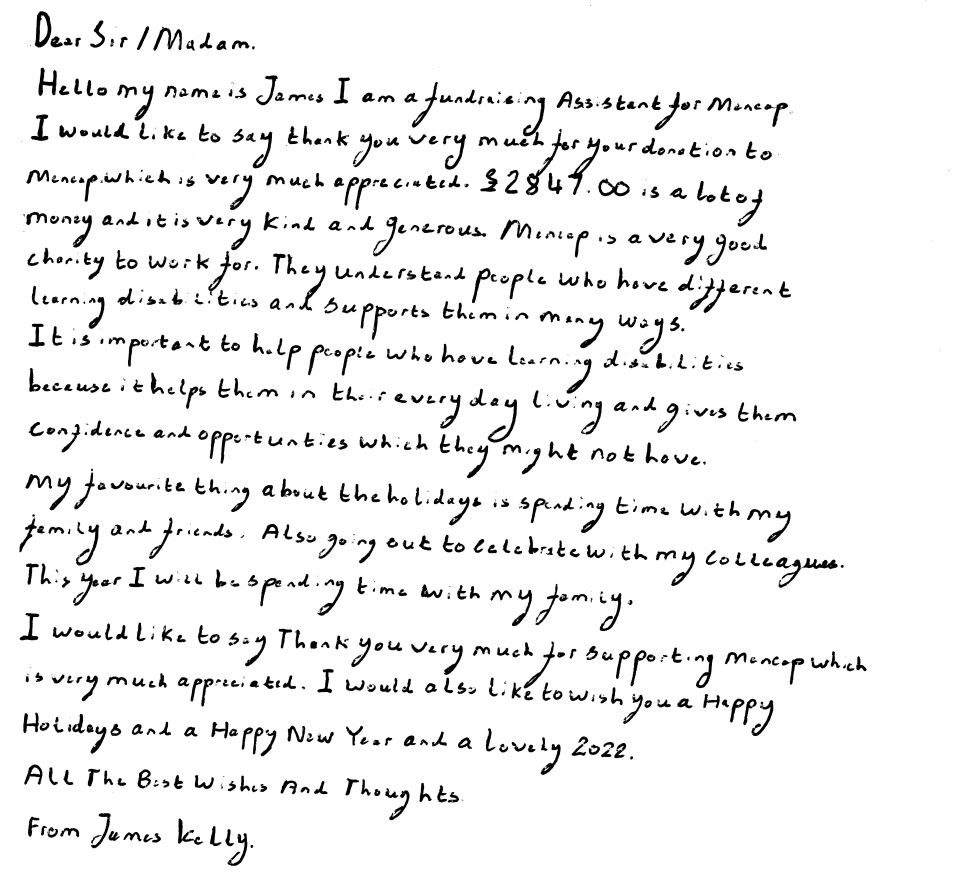 Dear Sir / Madam.
Hello my name is James I am a fundraising Assistant for Mencap.
I would like to say thank you very much for your donation to
Mencap.which is very much appreciated. £2847.00 is a lot of
money and it is very kind and generous. Mencap is a very good
charity to work for. They understand people who have different
learning disabilities and supports them in many ways.
It is important to help people who have learning disabilities
because it helps them in their everyday living and gives them
confidence and opportunties which they might not have.
My favourite thing about the holidays is spending time with my
family and friends. Also going out to celebrate with my colleagues.
This year I will be spending time with my family.
I would like to say Thank you very much for supporting Mencap which
is very much appreciated. I would also like to wish you a Happy
Holidays and a Happy New Year and a lovely 2022.
All The Best Wishes And Thoughts
From James Kelly.